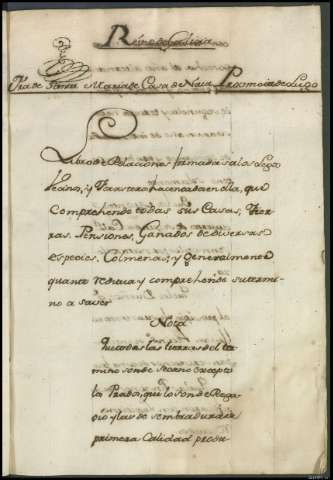 Reino de Galicia
Fra de Santa Maria de Casa de Naia, Provincia de Lugo
Libro de Relaciones formado a los Legos
Vecinos, y Forasteros hacendados en ella, que
Comprehende todas sus Casas, Tier
ras, Pensiones, Ganados de diversas
especies, Colmenas; y Generalmente
quanto rediua y comprehende su termi-
no a saver
Nota
Que todas las tierras del ter
mino son de secano excepto
los Prados, que lo son de Rega
dio y las de sembradura de
primera Calidad produ